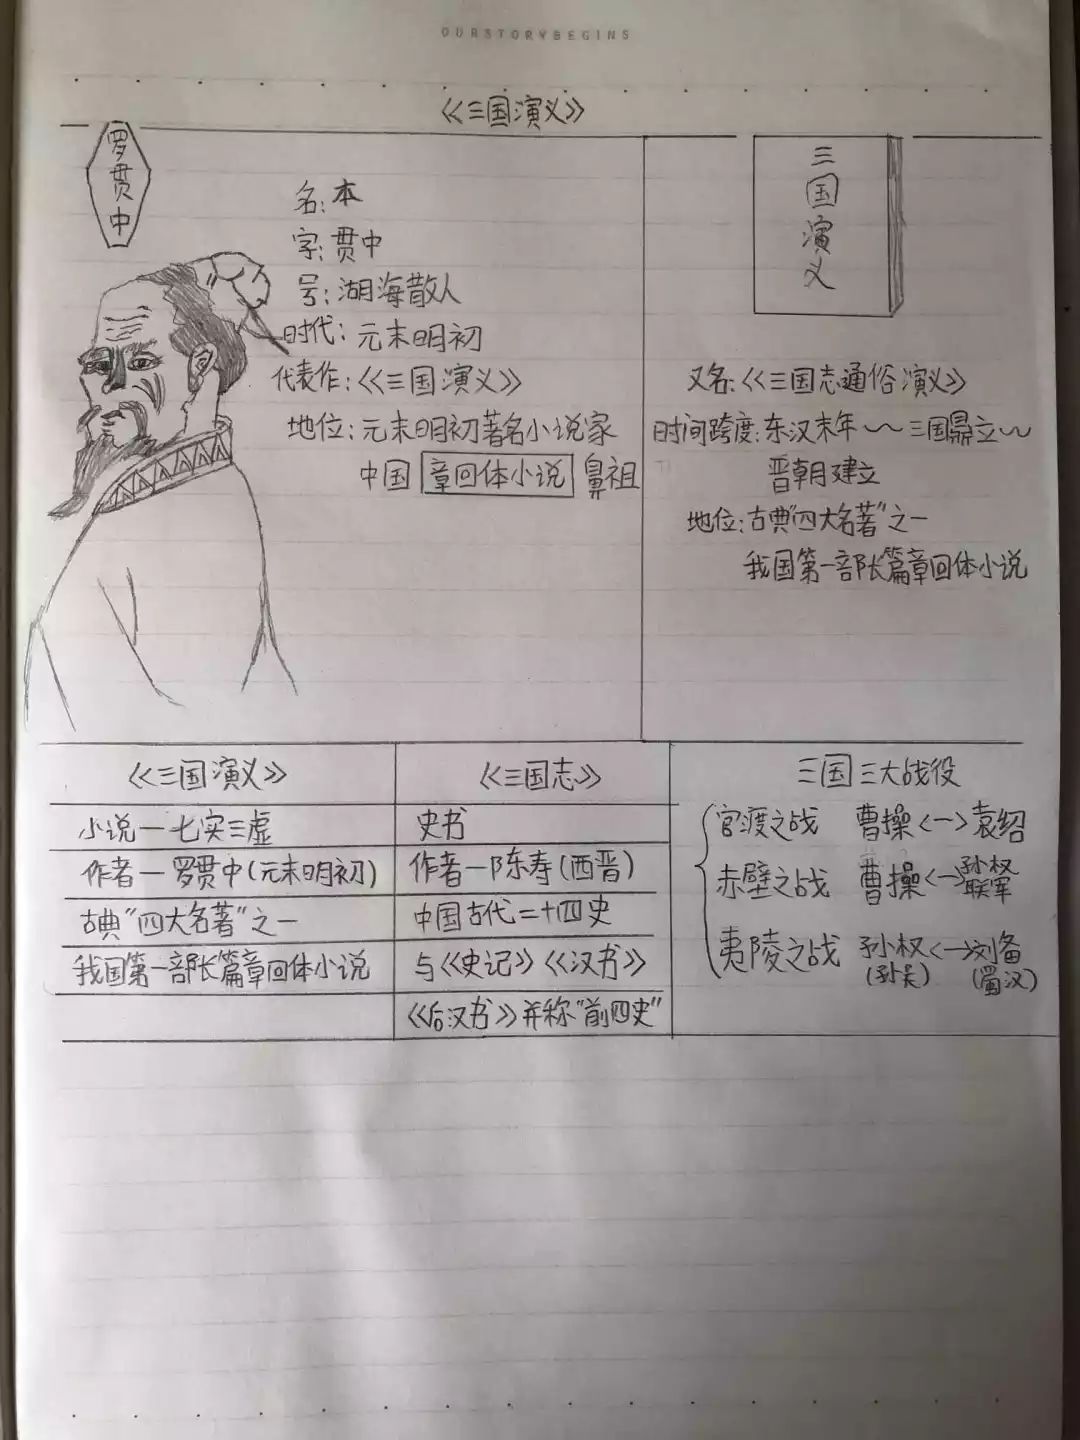 OURSTORYBEGINS
《三国演义》
罗贯中
名:本
字:贯中
号:湖海散人
时代:元末明初
代表作:《三国演义》
地位:元末明初著名小说家
中国章回体小说鼻祖
三国演义
又名:《三国志通俗演义》
时间跨度:东汉末年~三国鼎立~
晋朝建立
地位:古典"四大名著"之一
我国第一部长篇章回体小说
《三国演义》
小说—七实三虚
作者—罗贯中(元末明初)
古典"四大名著"之一
我国第一部长篇章回体小说
《三国志》
史书
作者—陈寿(西晋)
中国古代二十四史
与《史记》《汉书》
《后汉书》并称"前四史"
三国三大战役
官渡之战 曹操<—>袁绍
赤壁之战 曹操<—>孙权联军
夷陵之战 孙权<—>刘备
(孙吴) (蜀汉)